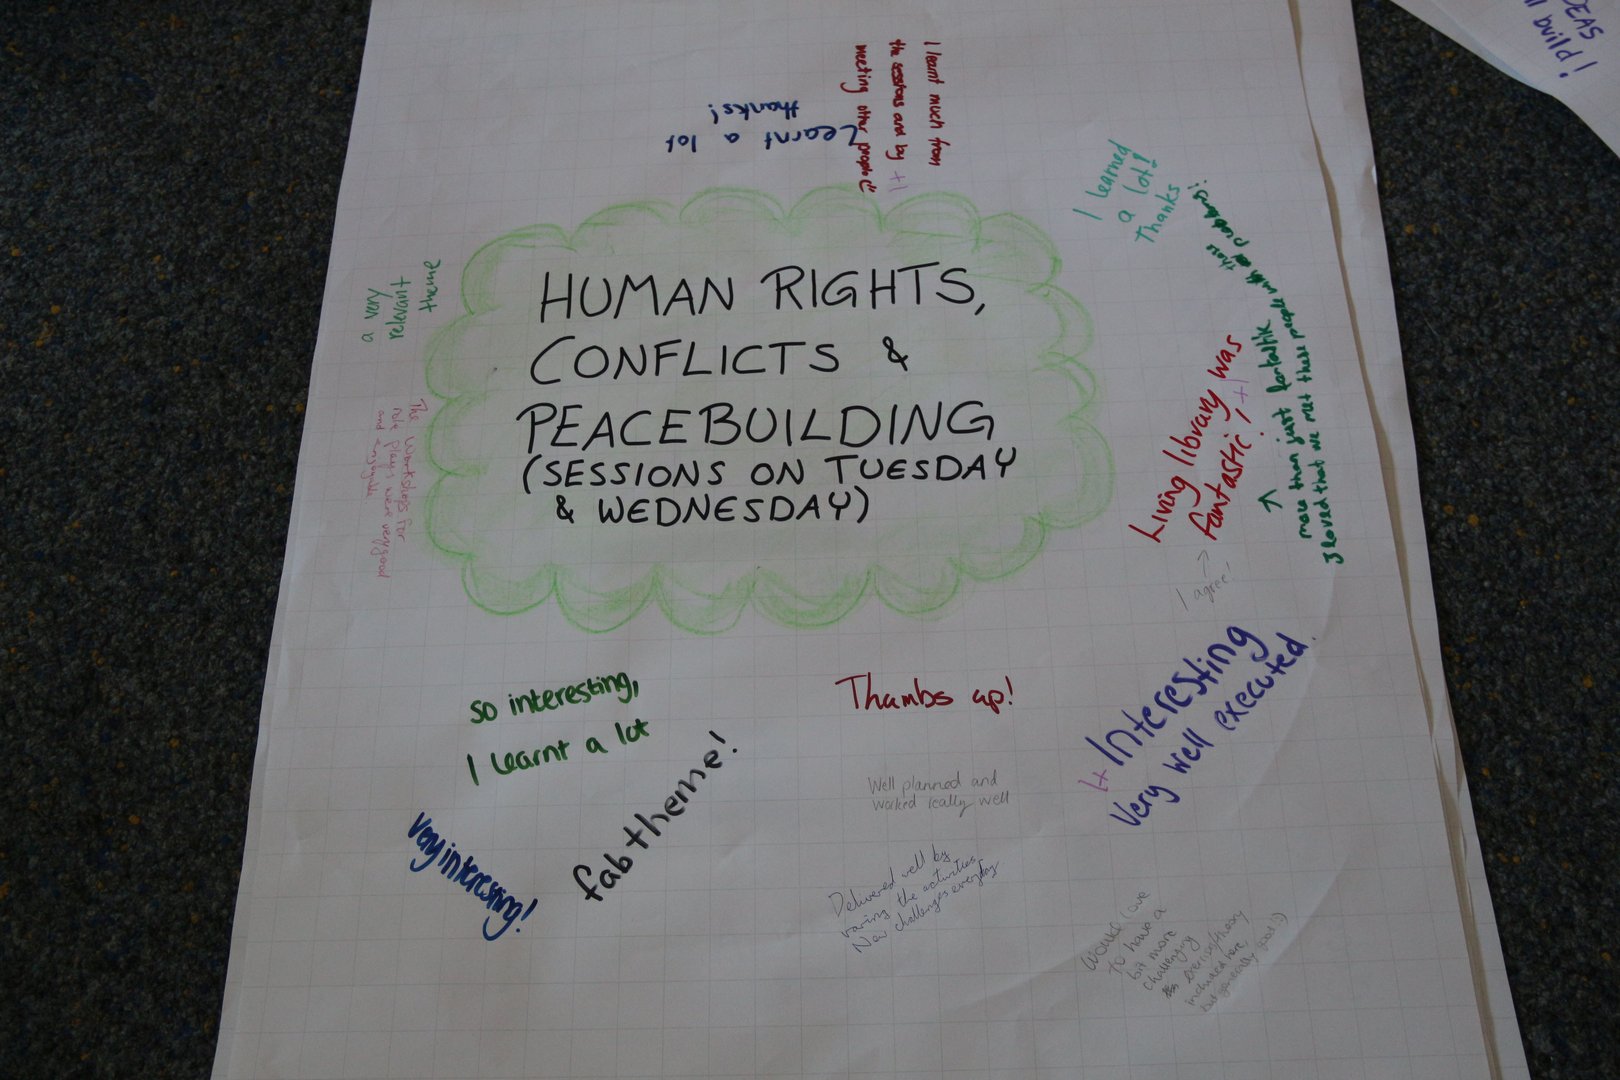 HUMAN RIGHTS,
CONFLICTS &
PEACEBUILDING
(SESSIONS ON TUESDAY
& WEDNESDAY)
I learnt much from
the sessions and by +1
meeting other people
Learnt a lot
thanks!
I learned
a lot!
Thanks
a very
relevant
theme
The workshops for
role plays were very good
and enjoyable
Living library was
fantastic! +1
↑
more than just fantastic
I loved that we met these people with
I agree!
+1 Interesting
Very well executed.
so interesting,
I learnt a lot
Thumbs up!
fab theme!
Very interesting!
Well planned and
worked really well
Delivered well by
varing the activities
New challenges everyday
Would love
to have a
bit more
challenging
exercise/theory
included here,
but generally good :)
IDEAS
build!